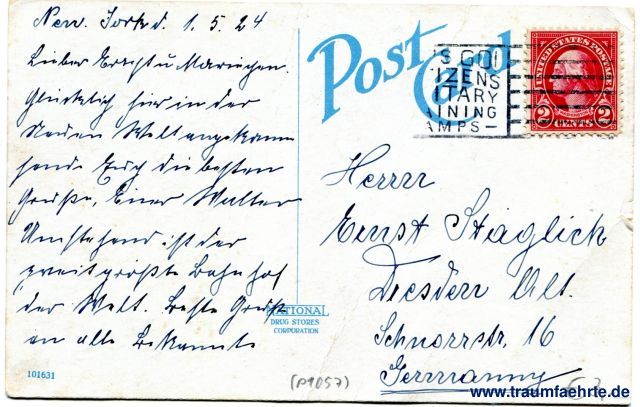 New York d. 1.5.24
Lieber Ernst u Mariechen.
Glücklich hier in der
Neuen Welt angekom̅
sende Euch die besten
Grüße, Euer Walter
Umstehend ist der
zweit größte Bahnhof
der Welt. Beste Grüße
an alle Bekannte
Post Card
S GOI
IZENS
ITARY
AINING
AMPS—
UNITED STATES POSTAGE
2 CENTS 2
Herrn
Ernst Stäglich
Dresden Alt.
Schnorrstr. 16
Germany
NATIONAL
DRUG STORES
CORPORATION
101631
(P1057)
www.traumfaehrte.de